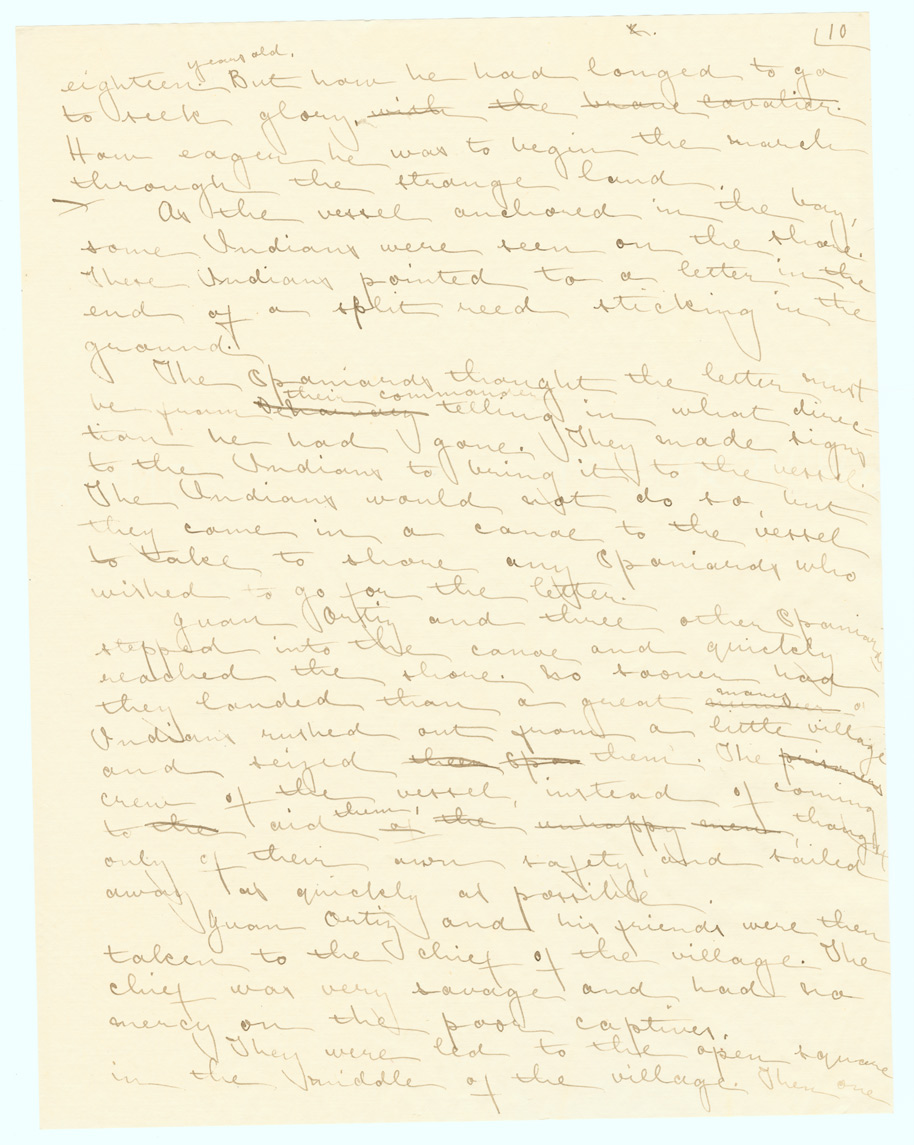 x. 10
years old.
eighteen. But how he had longed to go
to seek glory, with the brave cavalier.
How eager he was to begin the march
through the strange land.
> As the vessel anchored in the bay,
some Indians were seen on the shore.
These Indians pointed to a letter in the
end of a split reed sticking in the
ground.
The Spaniards thought the letter must
their commander
be from telling in what direc-
tion he had gone. They made signs
to the Indians to bring it to the vessel.
The Indians would not do so, but
they came in a canoe to the vessel
to take to shore any Spaniards who
wished to go for the letter.
Juan Ortiz and three other Spaniards
stepped into the canoe and quickly
reached the shore. No sooner had
many
they landed than a great number of
Indians rushed out from a little village
and seized them Spa them. The prisoners
crew of the vessel, instead of coming
them,
to the aid of the unhappy men, thought
only of their own safety and sailed
away as quickly as possible.
Juan Ortiz and his friends were then
taken to the chief of the village. The
chief was very savage and had no
mercy on the poor captives.
They were led to the open square
in the middle of the village. Then one